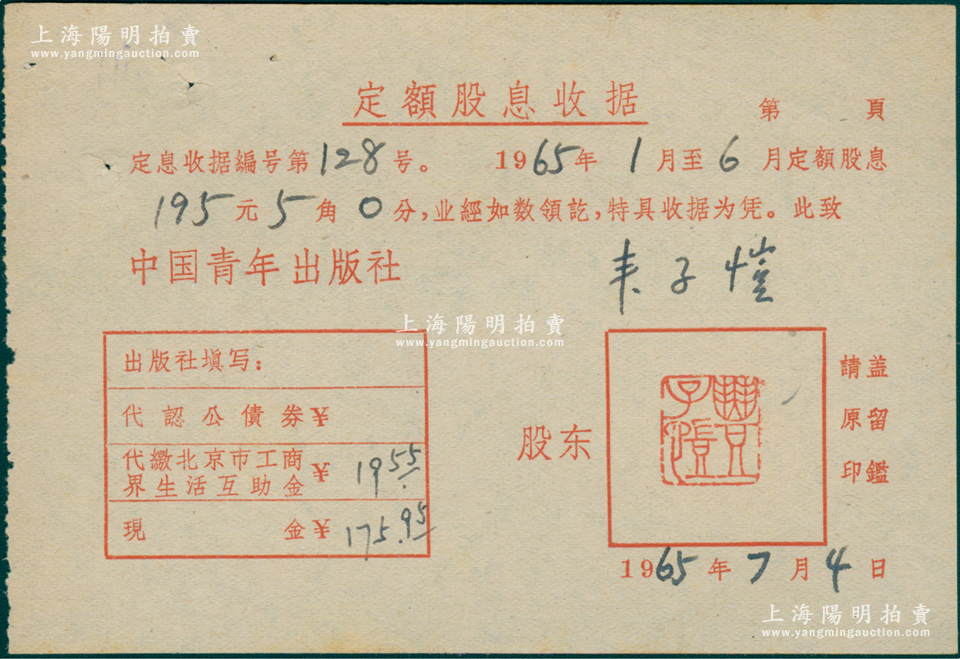 上海陽明拍賣
www.yangmingauction.com
定額股息收据
第 頁
定息收据編号第128号。 1965年1月至6月定額股息
195元5角0分,业經如数領訖,特具收据为凭。此致
中国青年出版社
丰子愷
上海陽明拍賣
www.yangmingauction.com
出版社塡写:
代認公債券¥
代繳北京市工商界生活互助金¥ 19.55
現金¥ 175.95
股东
豐子愷
請盖
原留
印鑑
1965年7月4日
上海陽明拍賣
www.yangmingauction.com